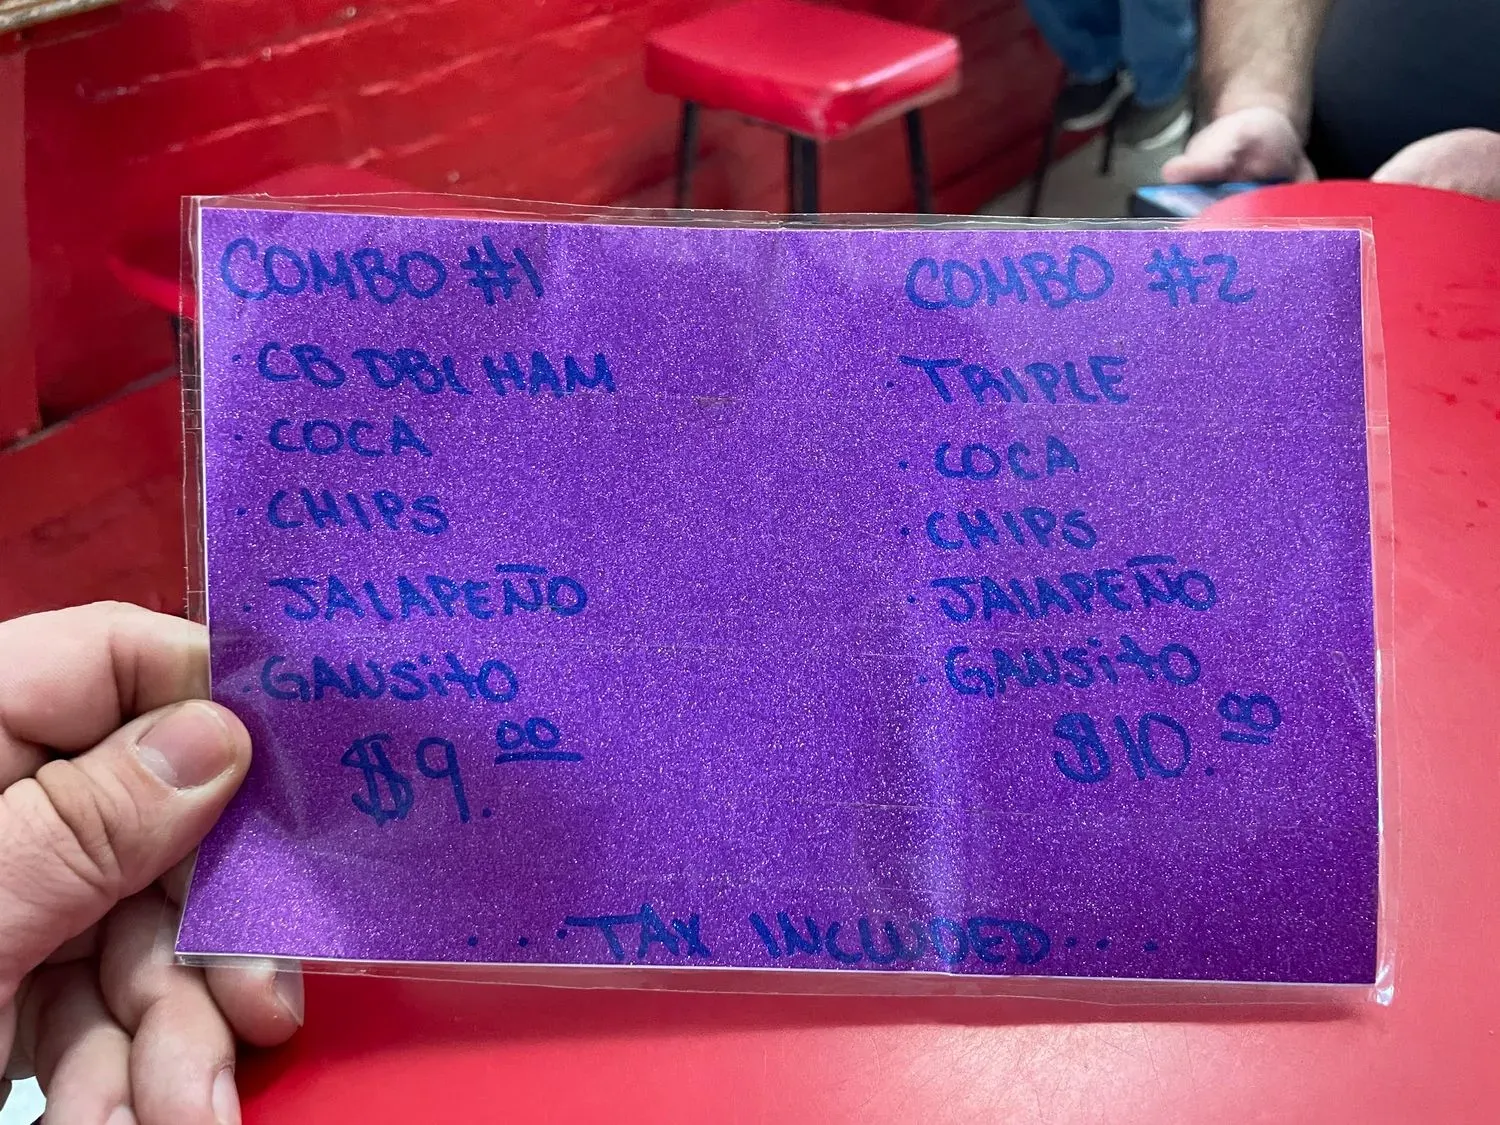 COMBO #1
· CB DBL HAM
· COCA
· CHIPS
· JALAPEÑO
· GANSitO
$9.00
COMBO #2
· TRIPLE
· COCA
· CHIPS
· JALAPEÑO
· GANSitO
$10.18
...TAX INCLUDED...